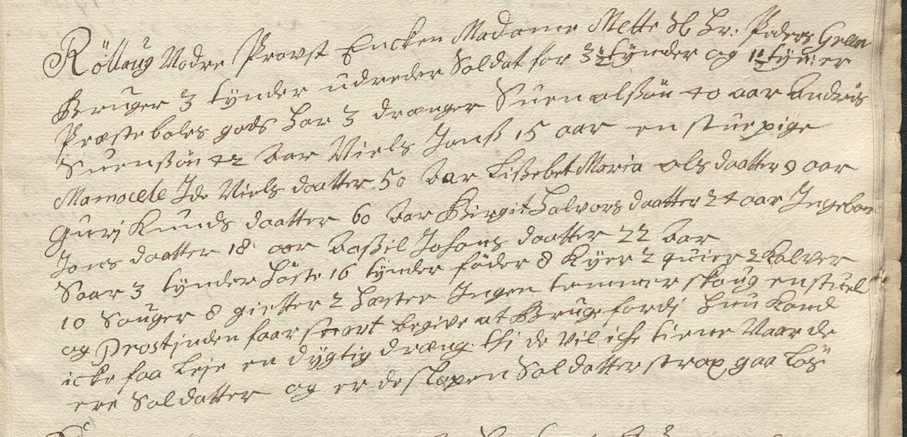 Röllaug Nodre Provst Encken Madame Mette Sl Hr: Peders
Bruger 3 tynder udreder Soldat for 3½ tynder og 1½ tynder
Præstebolets gods har 3 drænger Suen olssøn 40 aar Andris
Suenssøn 42 aar Niels Jonss 15 aar en stuepige
Mamocele Ide Niels daatter 50 aar Lissebet Maria ols daatter 9 aar
Guri Knuds daatter 60 aar Birgit Halvors daatter 24 aar Ingebor
Jons daatter 18 aar Johans daatter 22 aar
Saar 3 tynder höste 16 tynder föder 8 Kyer 2 quier 2 Kalver
10 Souger 8 gietter 2 hæster Ingen tommerskoug
og Provstinden faar snart begive at Bruge fordj hun Kand
icke faa leje en dygtig dræng thi de vil iche tiene Naar de
ere Soldatter og er de slapen Soldatter strax gaa Lös